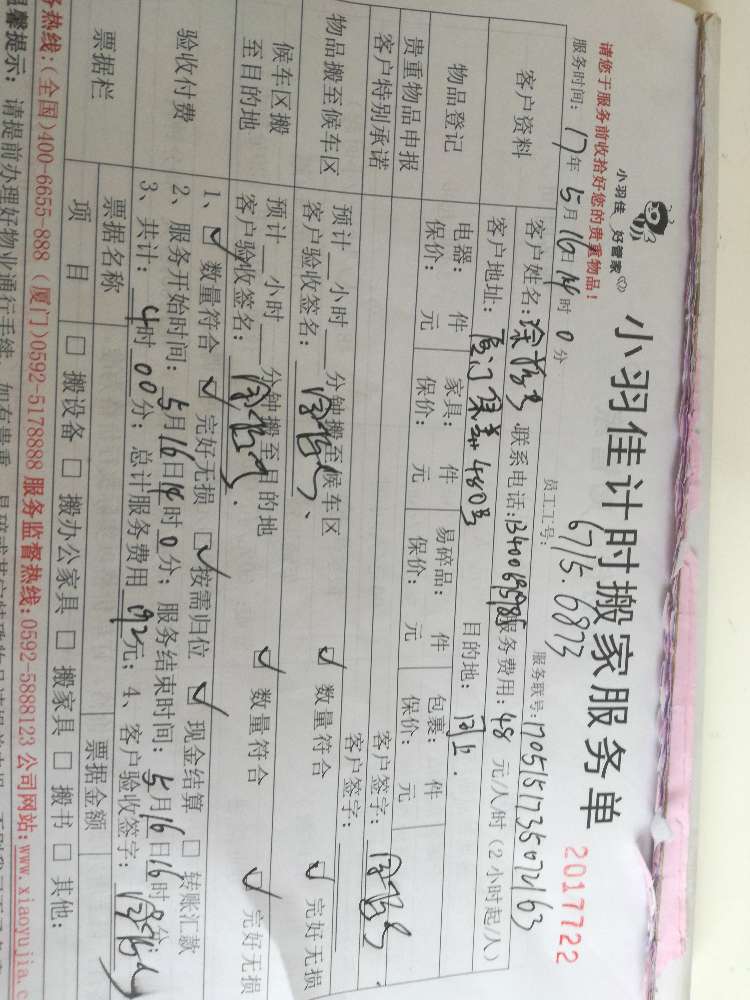 小羽佳 好管家
小羽佳计时搬家服务单
2017722
请您于服务前收拾好您的贵重物品！
员工工号： 6715.6873
服务时间： 17年 5月 16日 14时 0分
服务联号：
客户资料
客户姓名： 联系电话： 服务费用：48 元/人/时（2小时起/人）
客户地址： 480号 目的地：同上.
物品登记
电器： 件 家具： 件 易碎品： 件 包裹： 件
保价： 元 保价： 元 保价： 元 保价： 元
贵重物品申报 客户签字：
客户特别承诺 客户签字：
物品搬至候车区
预计 小时 分钟搬至候车区 ☑ 数量符合 ☑ 完好无损
客户验收签名：
候车区搬至目的地
预计 小时 分钟搬至目的地 ☑ 数量符合 ☑ 完好无损
客户验收签名：
验收付费
1、☑ 数量符合 ☑ 完好无损 ☑ 按需归位 ☑ 现金结算 □ 转账汇款
2、服务开始时间：5月16日14时0分；服务结束时间：5月16日16时 分；
3、共计：4时00分；总计服务费用 192元；4、客户验收签字：
票据栏
票据名称 票据金额
项 目 □ 搬设备 □ 搬办公家具 □ 搬家具 □ 搬书 □ 其他：
务热线：(全国)400-6655-888 (厦门)0592-5178888 服务监督热线：0592-5888123 公司网站：www.xiaoyujia.c
温馨提示： 请提前办理好物业通行手续，如有贵重、易碎或其它特殊物品请提前申报，否则我司不予负责